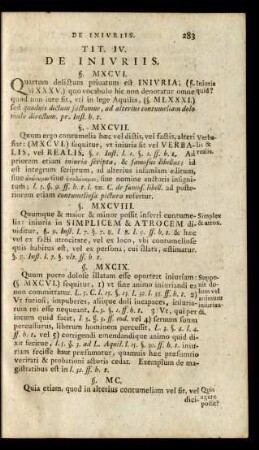 DE INIVRIIS. 283
TIT. IV.
DE INIVRIIS.
§. MXCVI.
Quartum delictum priuatum est INIVRIA; (§. Iniuria
MXXXV.) quo vocabulo hic non denotatur omne quid?
quod non iure fit, vti in lege Aquilia, (§. MLXXXI.)
sed quoduis dictum factumue, ad alterius contumeliam dolo
malo directum. pr. Inst. h. t.
§. MXCVII.
Quum ergo contumelia haec vel dictis, vel factis, alteri Verba-
fiat: (MXCVI.) sequitur, vt iniuria sit vel VERBA- lis &
LIS, vel REALIS, §. 1. Inst. l. 1. §. 1. ff. h. t. Ad realis.
priorem etiam iniuria scripta, & famosus libellus id
est integrum scriptum, ad alterius infamiam editum,
siue siue sine nomine auctoris insigni-
tum; l. 5. §. 9. ff. h. t. l. vn. C. de famos. libell. ad poste-
riorem etiam contumeliosa pictura refertur.
§. MXCVIII.
Quumque & maior & minor possit inferri contume- Simplex
lia: iniuria in SIMPLICEM & ATROCEM di- & atrox.
uiditur, §. 9. Inst. l. 7. §. 7. l. 8. l. 9. ff. h. t. & haec
vel ex facti atrocitate, vel ex loco, vbi contumeliose
quis habitus est, vel ex persona, cui illata, aestimatur.
§. 7. Inst. l. 7. §. vlt. ff. h. t.
§. MXCIX.
Quum porro dolose illatam esse oporteat iniuriam: Suppo-
(§. MXCVI.) sequitur, 1) vt sine animo iniuriandi ea nit do-
non committatur. L. 5. C. l. 15. §. 13. ff. h. t. 2) lum &
Vt furiosi, impuberes, aliique doli incapaces, iniuria-
rum rei non teneantur. l. 3. §. 1. ff. h. t. 3) Vt, qui per
iocum quid facit, l. 3. §. 3. ff. eod. vel 4) seruum sumit
percussurus, liberum hominem percussit. L. 3. §. 4. l. 4.
ff. h. t. vel 5) corrigendi emendandique animo quid di-
xit fecitue, l. 5. §. 3. ad L. Aquil. l. 15. §. ff. h. t. iniu-
riam fecisse haud praesumatur, quamuis haec praesumtio
veritati & probationi actoris cedat. Exemplum de ma-
gistratibus est in l. 32. ff. h. t.
§. MC.
Quia etiam, quod in alterius contumeliam vel fit, vel Quis
dici- agere
possit?